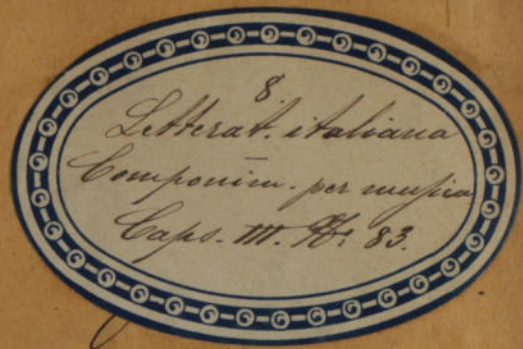 8
Letterat. italiana
Componim. per musica
Caps. III. No. 83.